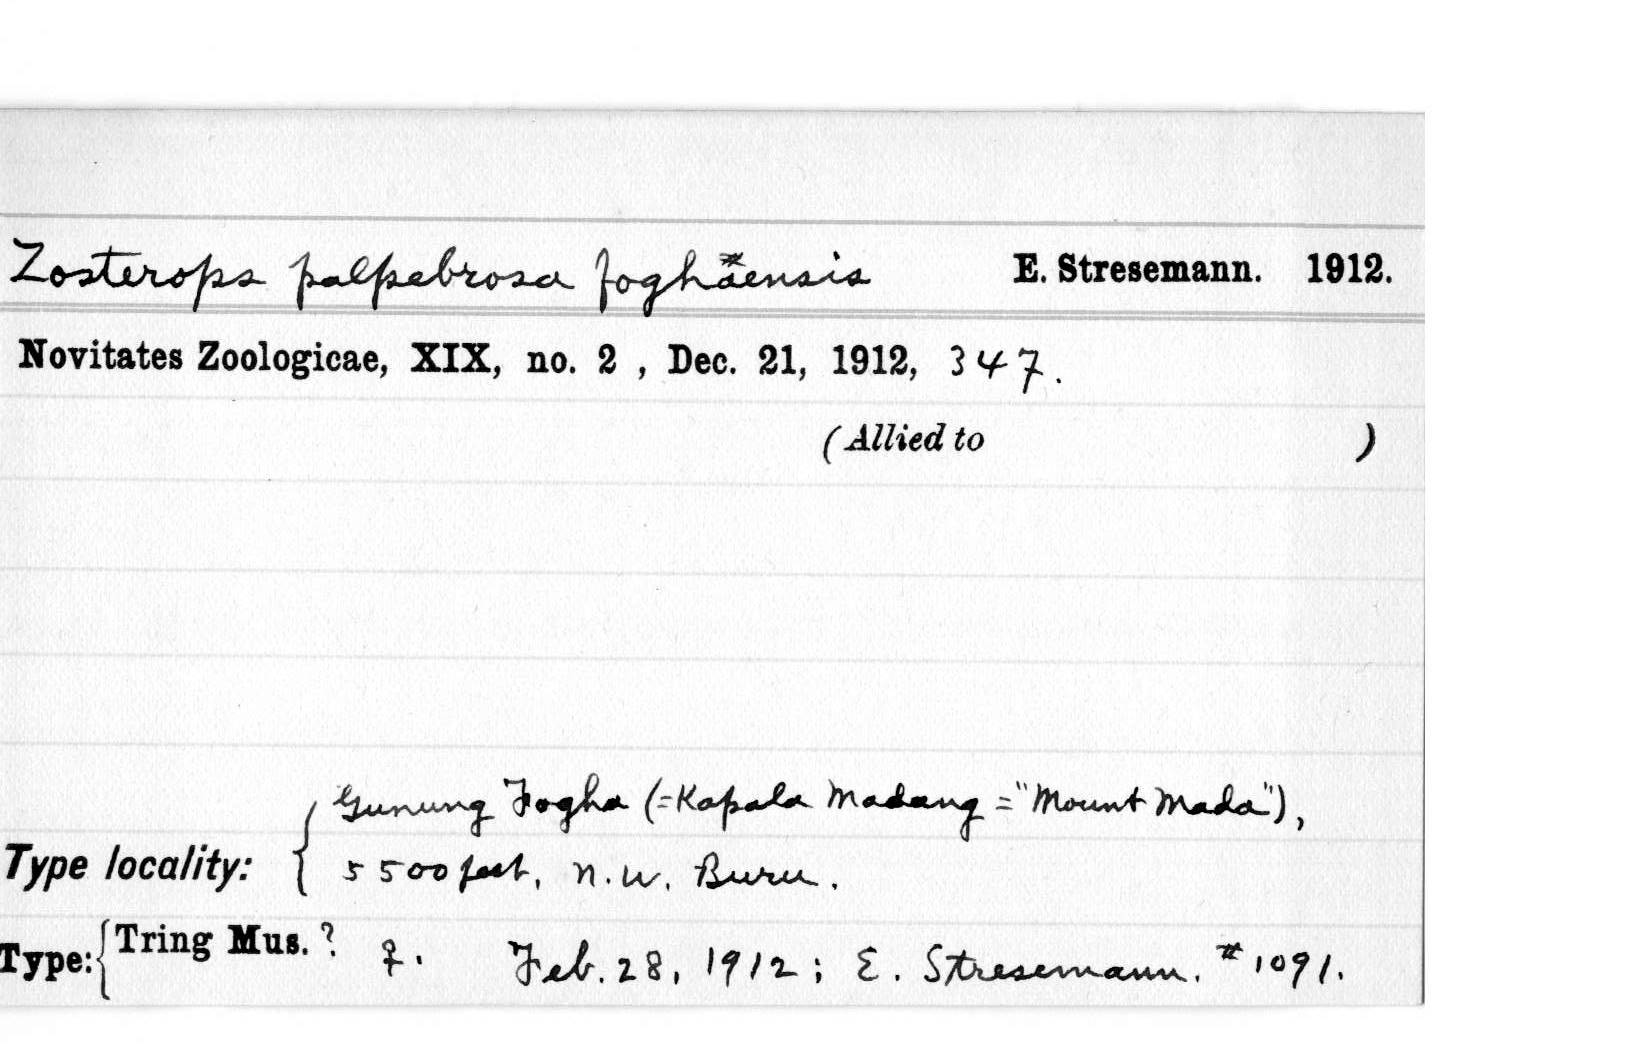 Zosterops palpebrosa foghäensis E. Stresemann. 1912.
Novitates Zoologicae, XIX, no. 2 , Dec. 21, 1912, 347.
(Allied to )
Gunung Fogha (=Kapala Madang ="Mount Mada"),
Type locality: { 5500 feet, N.W. Buru.
Type: { Tring Mus. ? ♀. Feb. 28, 1912; E. Stresemann. #1091.